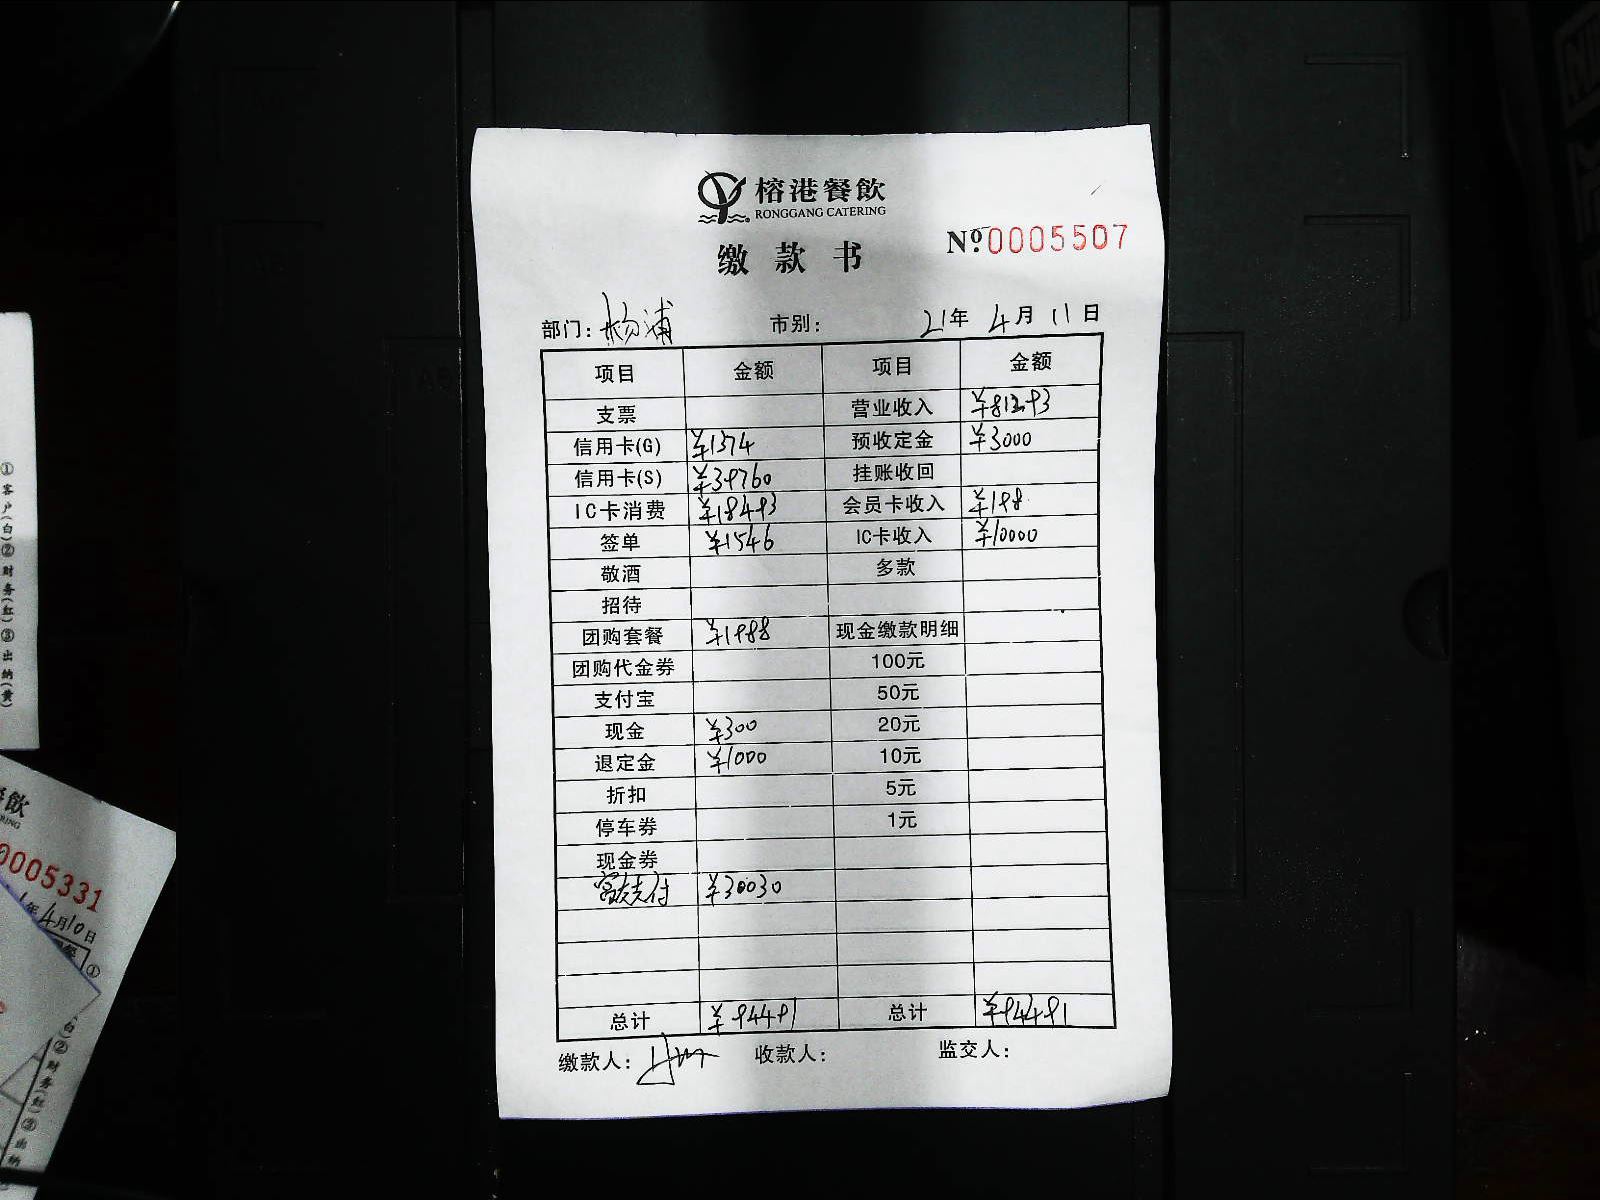 榕港餐飲
RONGGANG CATERING
缴款书
Nº:0005507
部门：杨浦 市别： 21年 4月 11日
项目 金额 项目 金额
支票 营业收入 ¥81293
信用卡(G) ¥1374 预收定金 ¥3000
信用卡(S) ¥39760 挂账收回
IC卡消费 ¥18493 会员卡收入 ¥198
签单 ¥1546 IC卡收入 ¥10000
敬酒 多款
招待
团购套餐 ¥1988 现金缴款明细
团购代金券 100元
支付宝 50元
现金 ¥300 20元
退定金 ¥1000 10元
折扣 5元
停车券 1元
现金券
富友支付 ¥30030
总计 ¥94491 总计 ¥94491
缴款人： 收款人： 监交人：
①客户(白)②财务(红)③出纳(黄)
飲
0005331
年4月10日
①
白)②财务(红)③出纳